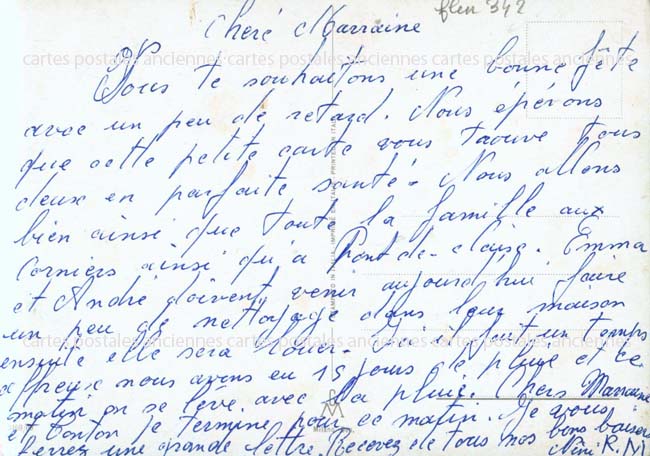 flen 342
Cheré Marraine
Nous te souhaitons une bonne fête
avec un peu de retard. Nous épérons
que cette petite carte vous trouve tous
deux en parfaite santé. Nous allons
bien ainsi que toute la famille aux
Corniers ainsi qu'a Pont-de-claise. Emma
et André doivent venir aujourd'hui faire
un peu de nettoyage dans leur maison
ensuite elle sera louer. Ici il fait un temps
affreux nous avons eu 15 jours de pluie et ce
matin on se leve avec la pluie. Chers Marraine
et tonton je termine pour ce matin. Je vous
ferrez une grande lettre. Recevez de tous nos bons baisers
Nini R.M
cartes postales anciennes cartes postales anciennes cartes postales anciennes
cartes postales anciennes cartes postales anciennes cartes postales anciennes
cartes postales anciennes cartes postales anciennes cartes postales anciennes